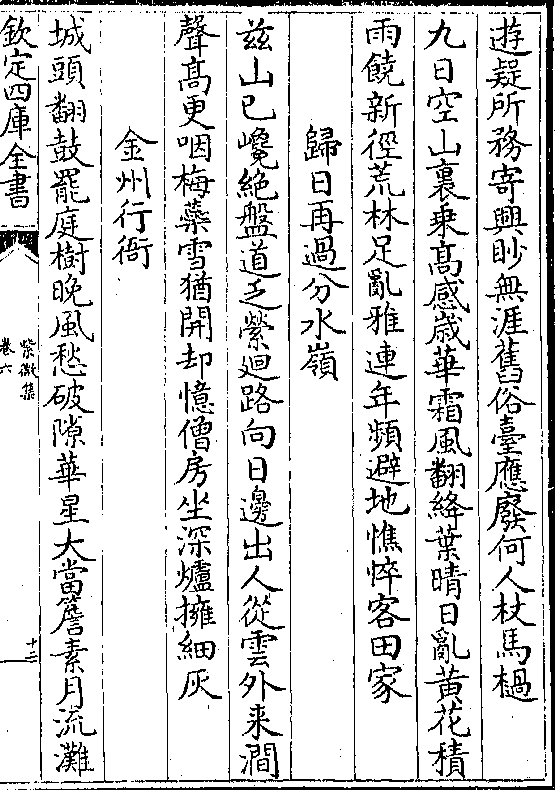 遊疑所務寄興眇無涯舊俗臺應廢何人杖馬檛
九日空山裏乗髙感歳華霜風翻絳葉晴日亂黄花積
雨饒新徑荒林足亂雅連年頻避地憔悴客田家
歸日再過分水嶺
兹山已巉絶盤道乏縈廻路向日邊出人從雲外来澗
聲髙更咽梅蘂雪猶開却憶僧房坐深爐擁細灰
金州行衙
城頭翻鼓罷庭樹晚風愁破隙華星大當簷素月流灘
欽定四庫全書
紫微集
卷六
十二